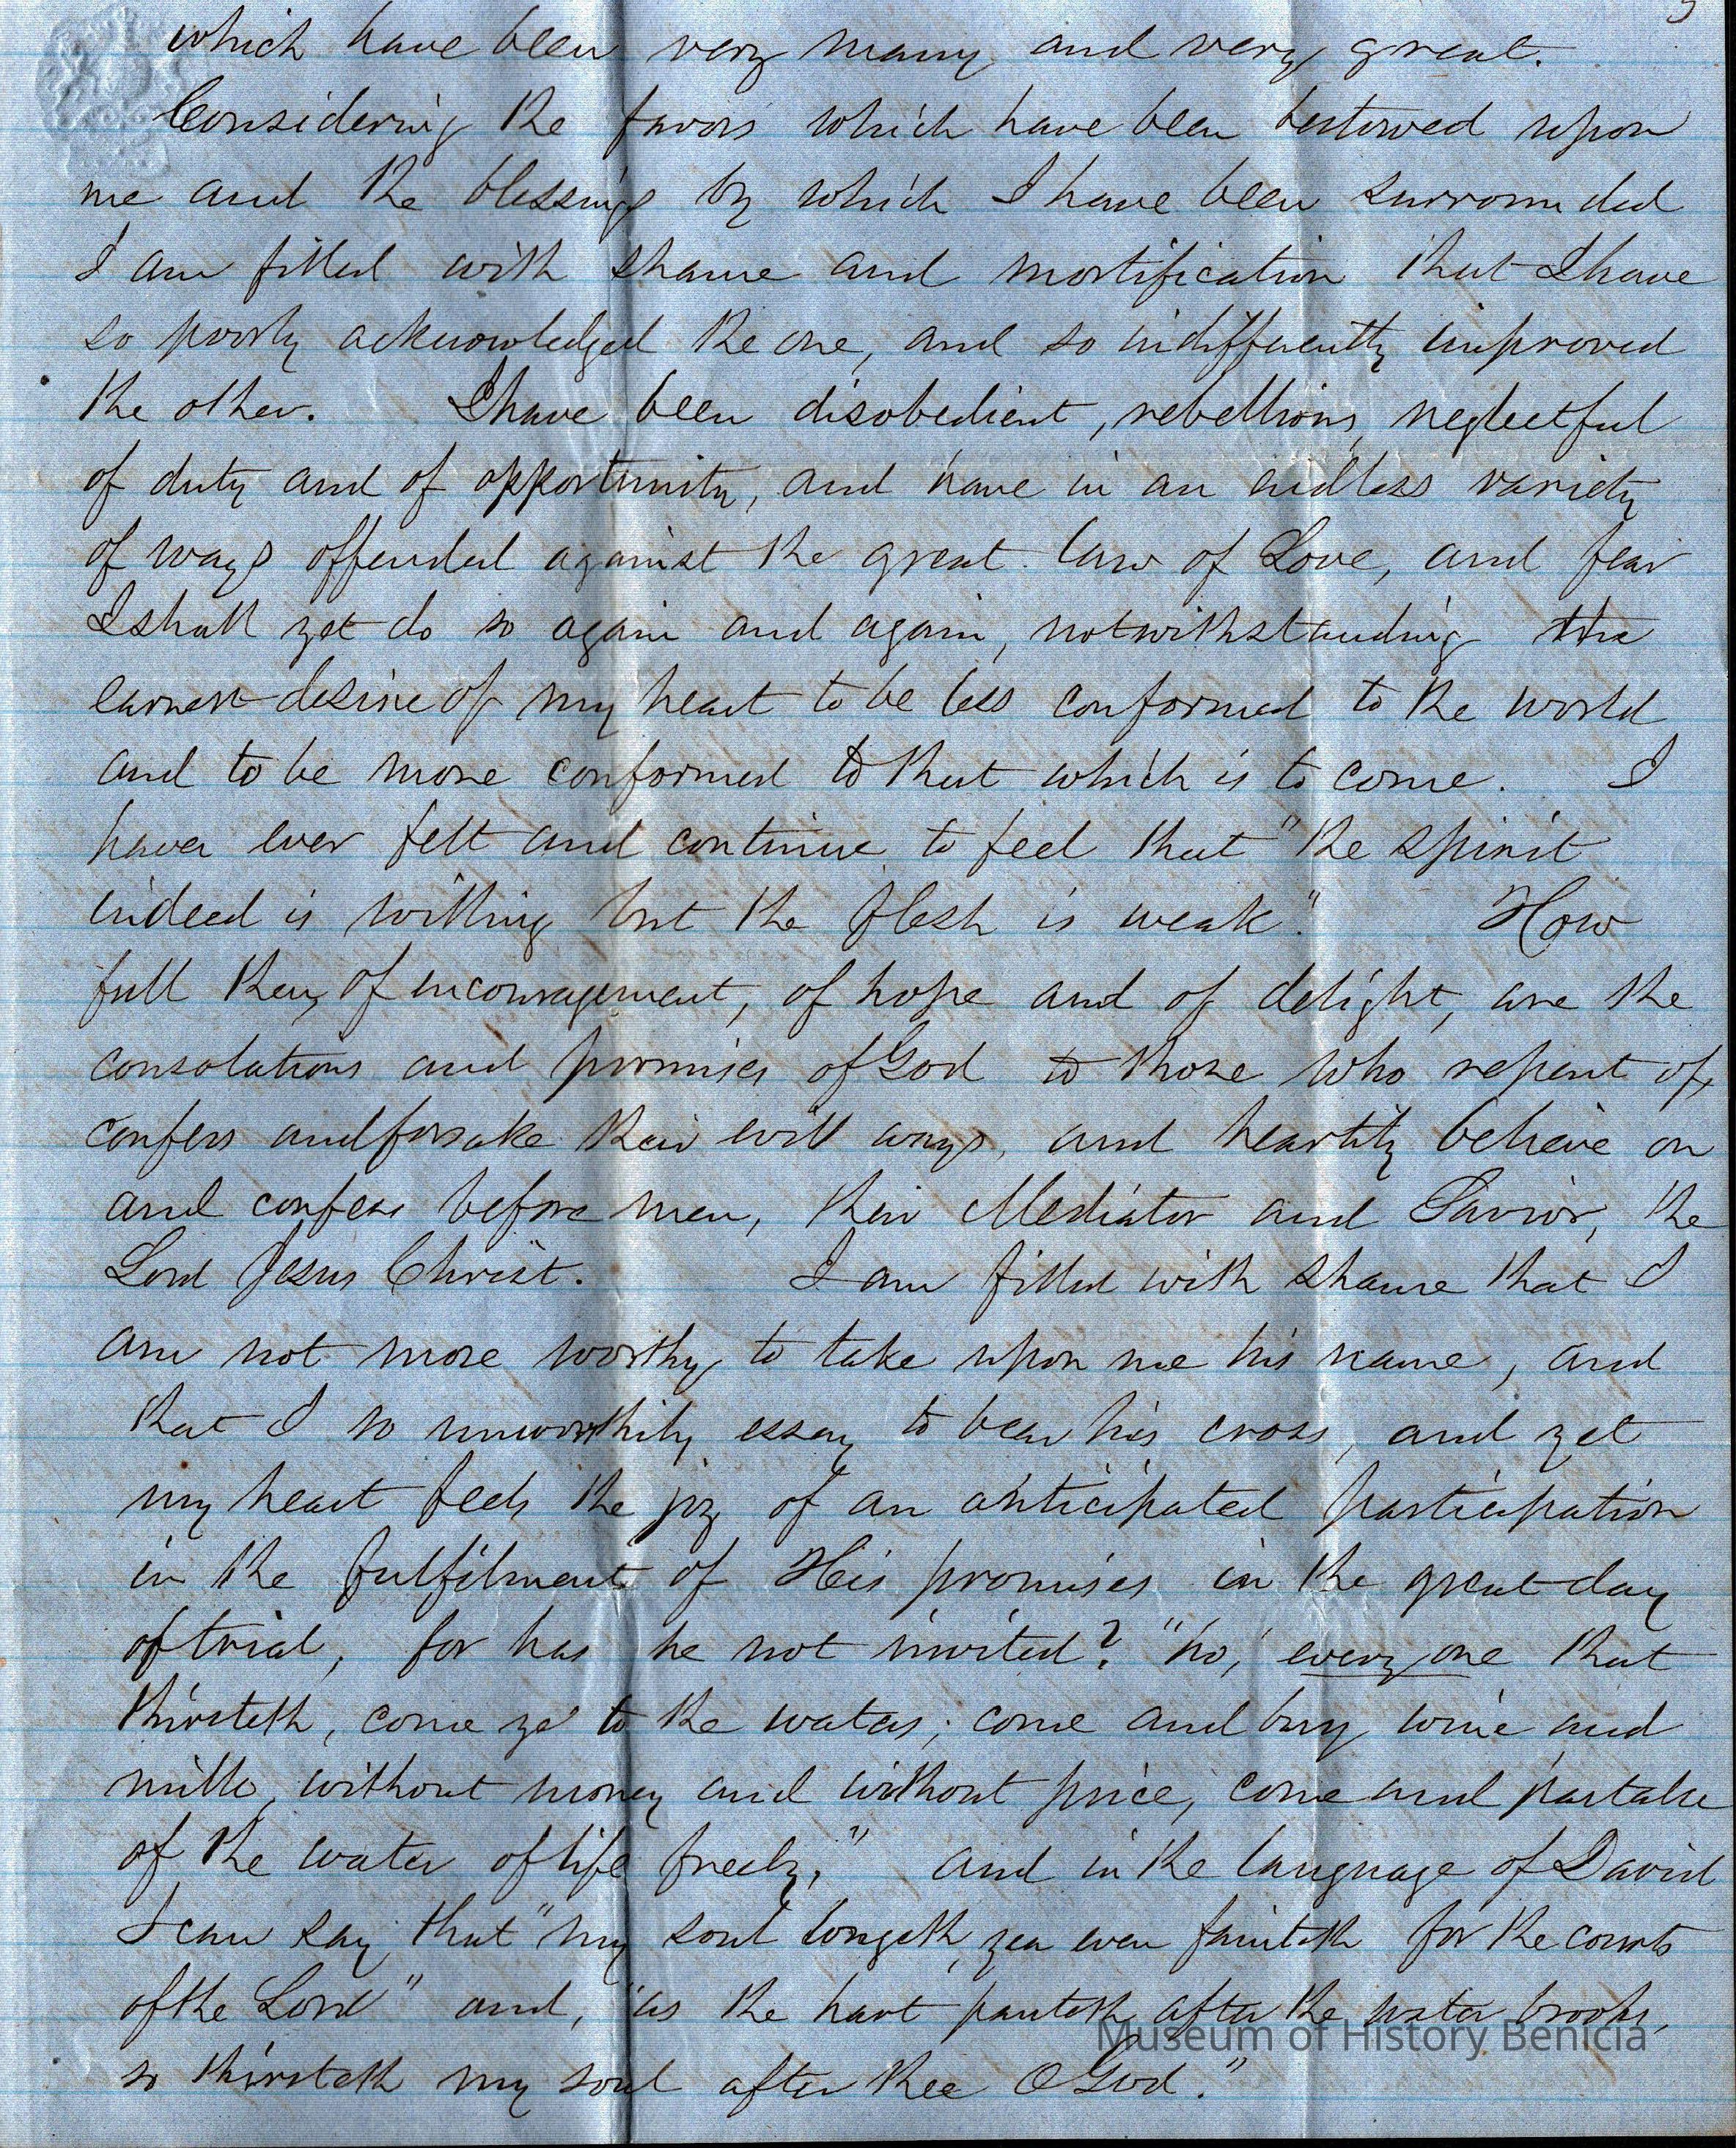 which have been very many and very great.
Considering the favors which have been bestowed upon
me and the blessings by which I have been surrounded
I am filled with shame and mortification that I have
so poorly acknowledged the one, and so indifferently improved
the other. I have been disobedient, rebellious, neglectful
of duty and of opportunity, and have in an endless variety
of ways offended against the great law of Love, and fear
I shall yet do so again and again, notwithstanding the
earnest desire of my heart to be less conformed to the world
and to be more conformed to that which is to come. I
have ever felt and continue to feel that "the spirit
indeed is willing but the flesh is weak". How
full then, of encouragement, of hope and of delight, are the
consolations and promises of God to those who repent of,
confess and forsake their evil ways, and heartily believe on
and confess before men, their Mediator and Savior, the
Lord Jesus Christ. I am filled with shame that I
am not more worthy to take upon me his name, and
that I so unworthily essay to bear his cross, and yet
my heart feels the joy of an anticipated participation
in the fulfilment of His promises in the great day
of trial, for has he not invited? "ho, every one that
thirsteth, come ye to the waters; come and buy wine and
milk, without money and without price, come and partake
of the water of life freely," and in the language of David
I can say that "my soul longeth, yea even fainteth for the courts
of the Lord" and, "as the hart panteth after the water brooks,
so thirsteth my soul after thee O God."
Museum of History Benicia